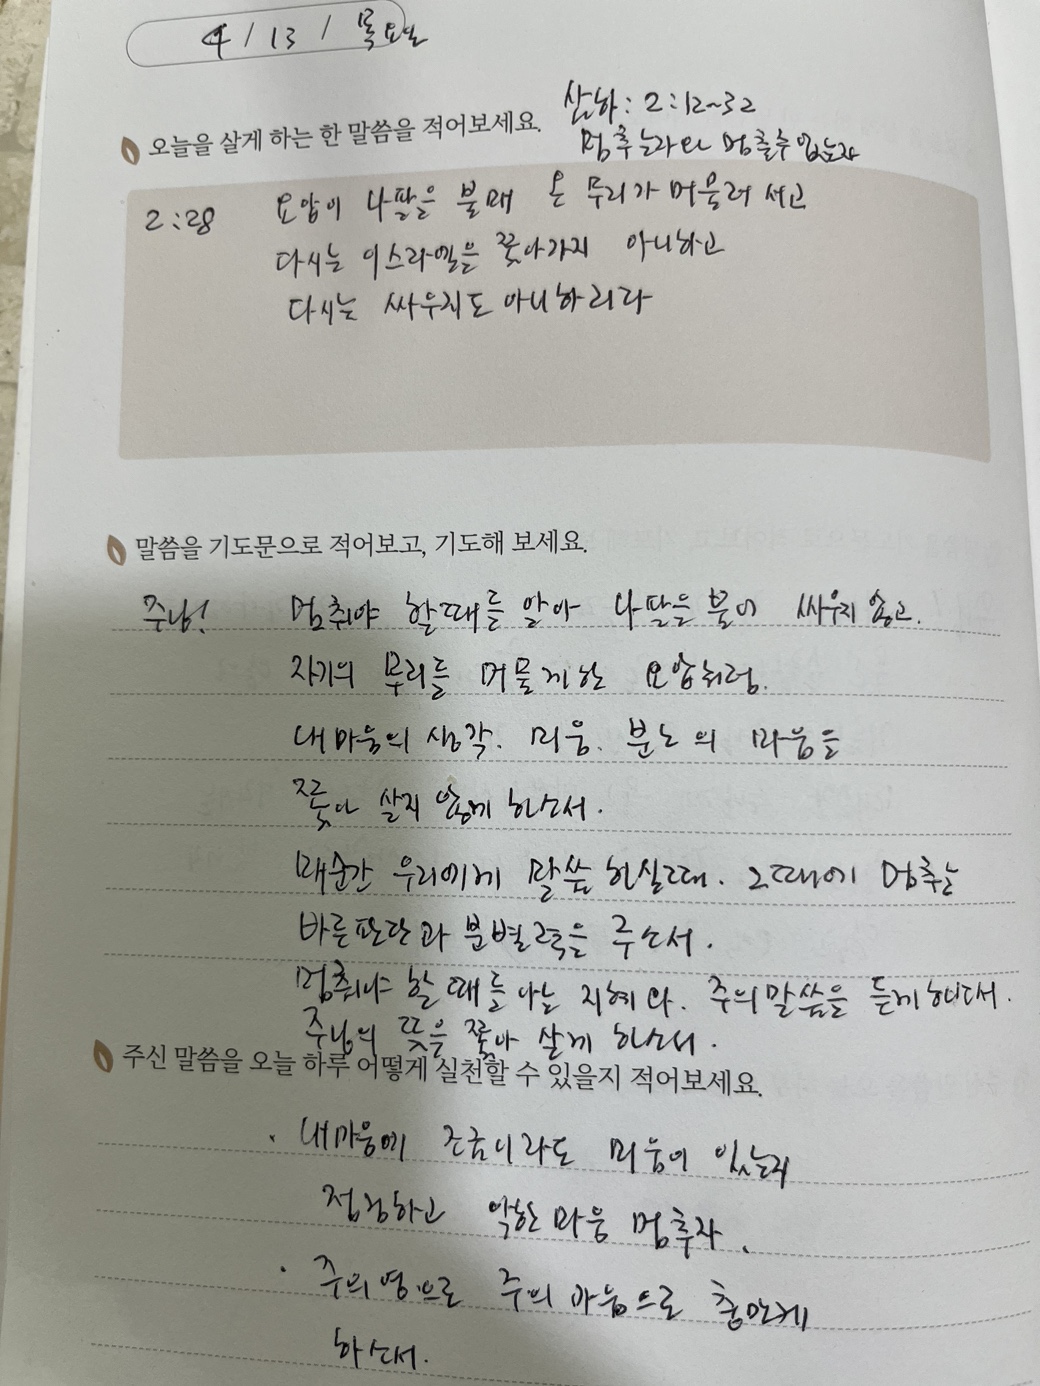 4 / 13 / 목요일
삼하: 2:12~32
오늘을 살게 하는 한 말씀을 적어보세요.
멈추는자와 멈출수없는자
2:28 요압이 나팔을 불매 온 무리가 머물러 서고
다시는 이스라엘을 쫓아가지 아니하고
다시는 싸우지도 아니하리라
말씀을 기도문으로 적어보고, 기도해 보세요.
주님! 멈춰야 할때를 알아 나팔을 불어 싸우지 않고.
자기의 무리를 머물게한 요압처럼.
내마음의 생각. 미움. 분노의 마음을
쫓아 살지 않게 하소서.
매순간 우리에게 말씀하실때. 그때에 멈추는
바른판단과 분별력을 주소서.
멈춰야 할 때를 아는 지혜와. 주의말씀을 듣게하소서.
주님의 뜻을 쫓아 살게 하소서.
주신 말씀을 오늘 하루 어떻게 실천할 수 있을지 적어보세요.
· 내마음에 조금이라도 미움이 있는지
점검하고 악한마음 멈추자.
· 주의영으로 주의 마음으로 충만케
하소서.